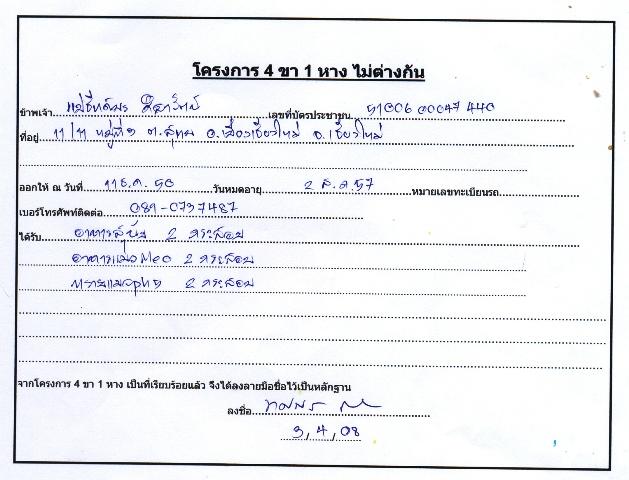 โครงการ 4 ขา 1 หาง ไม่ต่างกัน
ข้าพเจ้า แม่ชี เลขที่บัตรประชาชน 51006 00047 440
ที่อยู่ 11/1 หมู่ที่ ต.สุเทพ อ.เมืองเชียงใหม่ จ.เชียงใหม่
ออกให้ ณ วันที่ 11 ธ.ค. 50 วันหมดอายุ 2 ส.ค. 57 หมายเลขทะเบียนรถ
เบอร์โทรศัพท์ติดต่อ 089-0737487
ได้รับ อาหารสุนัข 2 กระสอบ
อาหารแมว Meo 2 กระสอบ
ทรายแมว 2 กระสอบ
จากโครงการ 4 ขา 1 หาง เป็นที่เรียบร้อยแล้ว จึงได้ลงลายมือชื่อไว้เป็นหลักฐาน
ลงชื่อ
9, 4, 08